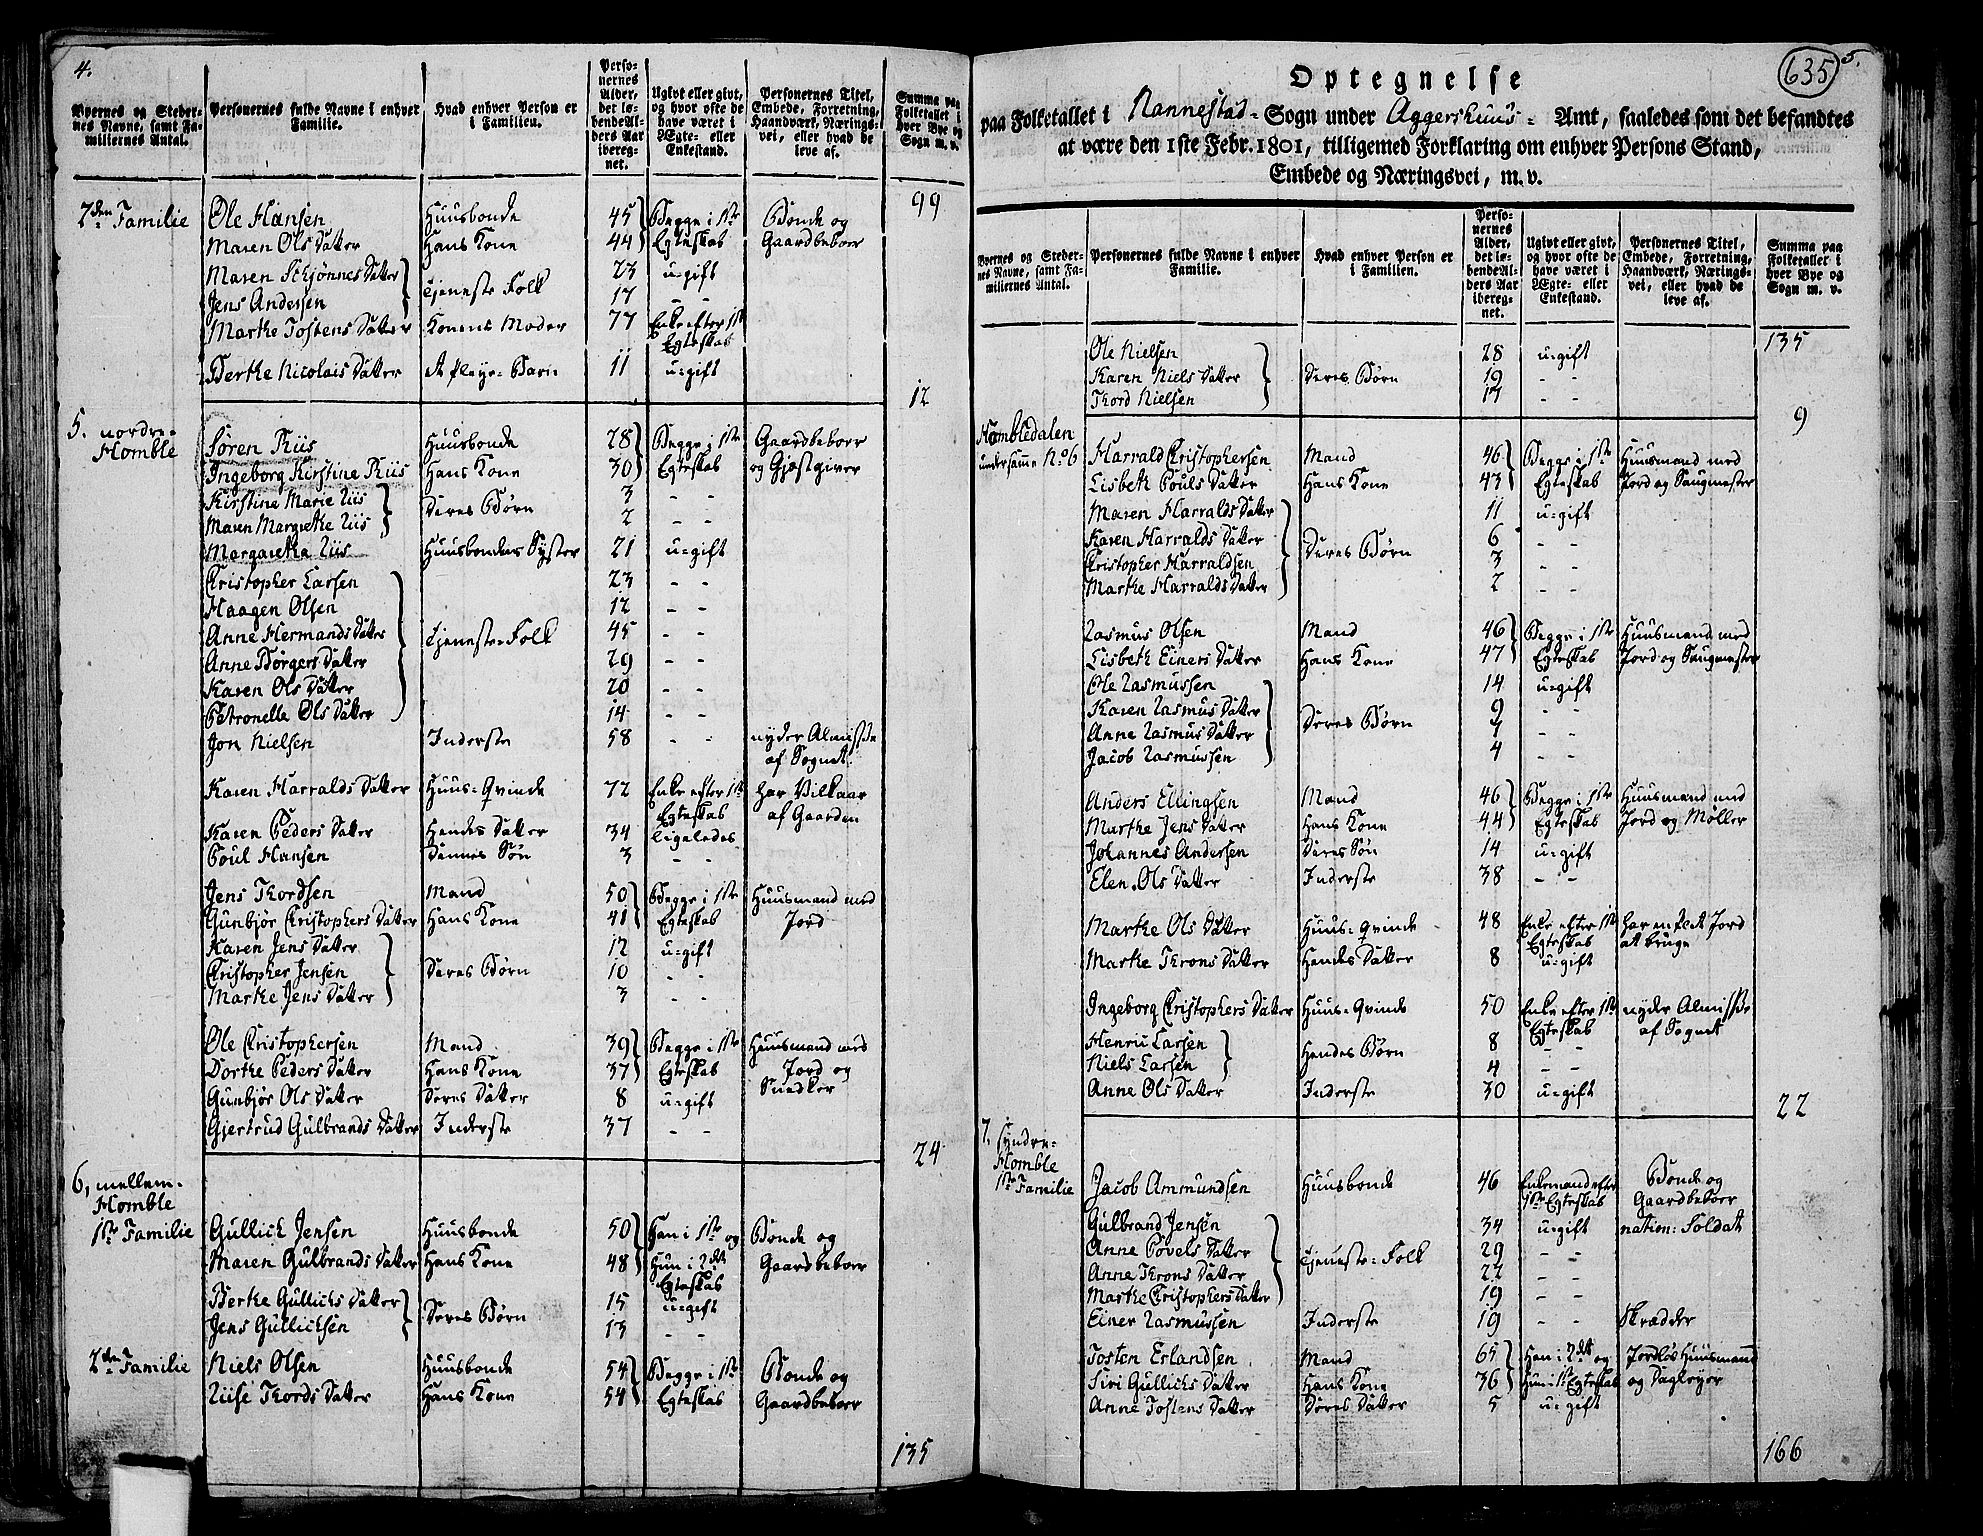 4.
Byernes og Steder-
nes Navne, samt Fa-
miliernes Antal.
Personernes fulde Navne i enhver
Familie.
Hvad enhver Person er
i Familien.
Perso-
nernes
Alder,
det lø-
bende Al-
ders Aar
ibereg-
net.
Ugivt eller givt,
og hvor ofte de
have været i
Ægte- eller
Enkestand.
Personernes Titel,
Embede, Forretning,
Haandværk, Nærings-
vei, eller hvad de
leve af.
Summa paa
Folketallet i
hver Bye og
Sogn m. v.
99
2den Familie Ole Hansen Huusbonde 45 Begge i 1ste Bonde og
Maren Ols Datter Hans Kone 44 Egteskab Gaardbeboer
Maren Skjønnes Datter Tjeneste Folk 23 u-gift
Jens Andersen 17 - -
Marthe Tostens Datter Konens Moder 77 Enke efter 1ste
Egteskab
Berthe Nicolais Datter At Pleye-Barn 11 u-gift
12
5. nordre-
Homble
Søren Riis Huusbonde 28 Begge i 1ste Gaardbeboer
Ingeborg Kirstine Riis Hans Kone 30 Egteskab og Gjæstgiver
Kirstine Marie Riis Deres Børn 3 - -
Maren Margrethe Riis 2 - -
Margaretha Riis Huusbondens Syster 21 u-gift
Christopher Larsen Tjeneste-Folk 23 - -
Haagen Olsen 12 - -
Anne Hermands Datter 45 - -
Anne Børgers Datter 29 - -
Karen Ols Datter 20 - -
Petronelle Ols Datter 14 - -
Jon Nielsen Inderste 58 - - nyder Almisse
af Sognet.
Karen Harralds Datter Huus-Qvinde 72 Enke efter 1ste har Vilkaar
Egteskab af Gaarden
Karen Peders Datter Hendes Datter 34 ligeledes
Poul Hansen Dennes Søn 3 - -
Jens Thordsen Mand 50 Begge i 1ste Huusmand med
Gunbjør Christophers Datter Hans Kone 41 Egteskab Jord
Karen Jens Datter Deres Børn 12 u-gift
Christopher Jensen 10 - -
Marthe Jens Datter 3 - -
Ole Christophersen Mand 39 Begge i 1ste Huusmand med
Dorthe Peders Datter Hans Kone 37 Egteskab Jord og
Gunbjør Ols Datter Deres Datter 8 u-gift Snedker
Gjertrud Gulbrands Datter Inderste 37 - -
24
6, mellem-
Homble
1ste Familie Gullick Jensen Huusbonde 50 Han i 1ste og Bonde og
Maren Gulbrands Datter Hans Kone 48 Hun i 2det Gaardbeboer
Egteskab
Berthe Gullichs Datter Deres Børn 15 u-gift
Jens Gullichsen 13 - -
2den Familie Niels Olsen Huusbonde 54 Begge i 1ste Bonde og
Liise Thords Datter Hans Kone 54 Egteskab Gaardbeboer
135
635
5.
Optegnelse
paa Folketallet i Nannestad- Sogn under Aggershuus- Amt, saaledes som det befandtes
at være den 1ste Febr. 1801, tilligemed Forklaring om enhver Persons Stand,
Embede og Næringsvei, m. v.
Byernes og Steder-
nes Navne, samt Fa-
miliernes Antal.
Personernes fulde Navne i enhver
Familie.
Hvad enhver Person er
i Familien.
Perso-
nernes
Alder,
det lø-
bende Al-
ders Aar
ibereg-
net.
Ugivt eller givt,
og hvor ofte de
have været i
Ægte- eller
Enkestand.
Personernes Titel,
Embede, Forretning,
Haandværk, Nærings-
vei, eller hvad de
leve af.
Summa paa
Folketallet i
hver Bye og
Sogn m. v.
135
Ole Nielsen Deres Børn 28 u-gift
Karen Niels Datter 19 - -
Thord Nielsen 17 - -
9
Hombledalen
under samme No 6
Harrald Christophersen Mand 46 Begge i 1ste Huusmand med
Lisbeth Pouls Datter Hans Kone 43 Egteskab Jord og Saugmester
Maren Harralds Datter Deres Børn 11 u-gift
Karen Harralds Datter 6 - -
Christopher Harraldsen 3 - -
Marthe Harralds Datter 2 - -
Rasmus Olsen Mand 46 Begge i 1ste Huusmand med
Lisbeth Einers Datter Hans Kone 47 Egteskab Jord og Saugmester
Ole Rasmussen Deres Børn 14 u-gift
Karen Rasmus Datter 9 - -
Anne Rasmus Datter 7 - -
Jacob Rasmussen 4 - -
Anders Ellingsen Mand 46 Begge i 1ste Huusmand med
Marthe Jens Datter Hans Kone 44 Egteskab Jord og Møller
Johannes Andersen Deres Søn 14 u-gift
Elen Ols Datter Inderste 38 - -
Marthe Ols Datter Huus-Qvinde 48 Enke efter 1ste har en Plet Jord
Egteskab at bruge
Marthe Throns Datter Hendes Datter 8 u-gift
Ingeborg Christophers Datter Huus-Qvinde 50 Enke efter 1ste nyder Almisse
Egteskab af Sognet
Henric Larsen Hendes Børn 8 - -
Niels Larsen 4 - -
Anne Ols Datter Inderste 30 u-gift
22
7. Syndre-
Homble
1ste Familie Jacob Ammundsen Huusbonde 46 Enkemand efter Bonde og
1ste Egteskab Gaardbeboer
Gulbrand Jensen Tjeneste-Folk 34 u-gift nation: Soldat
Anne Povels Datter 29 - -
Anne Throns Datter 22 - -
Marthe Christophers Datter 19 - -
Einer Rasmussen Inderste 19 - - Skrædder
Tosten Erlandsen Mand 65 Han i 2det og Jordløs Huusmand
Siri Gullichs Datter Hans Kone 36 Hun i 1ste Egteskab og Dagleyer
Anne Tostens Datter Deres Datter 5 u-gift
166